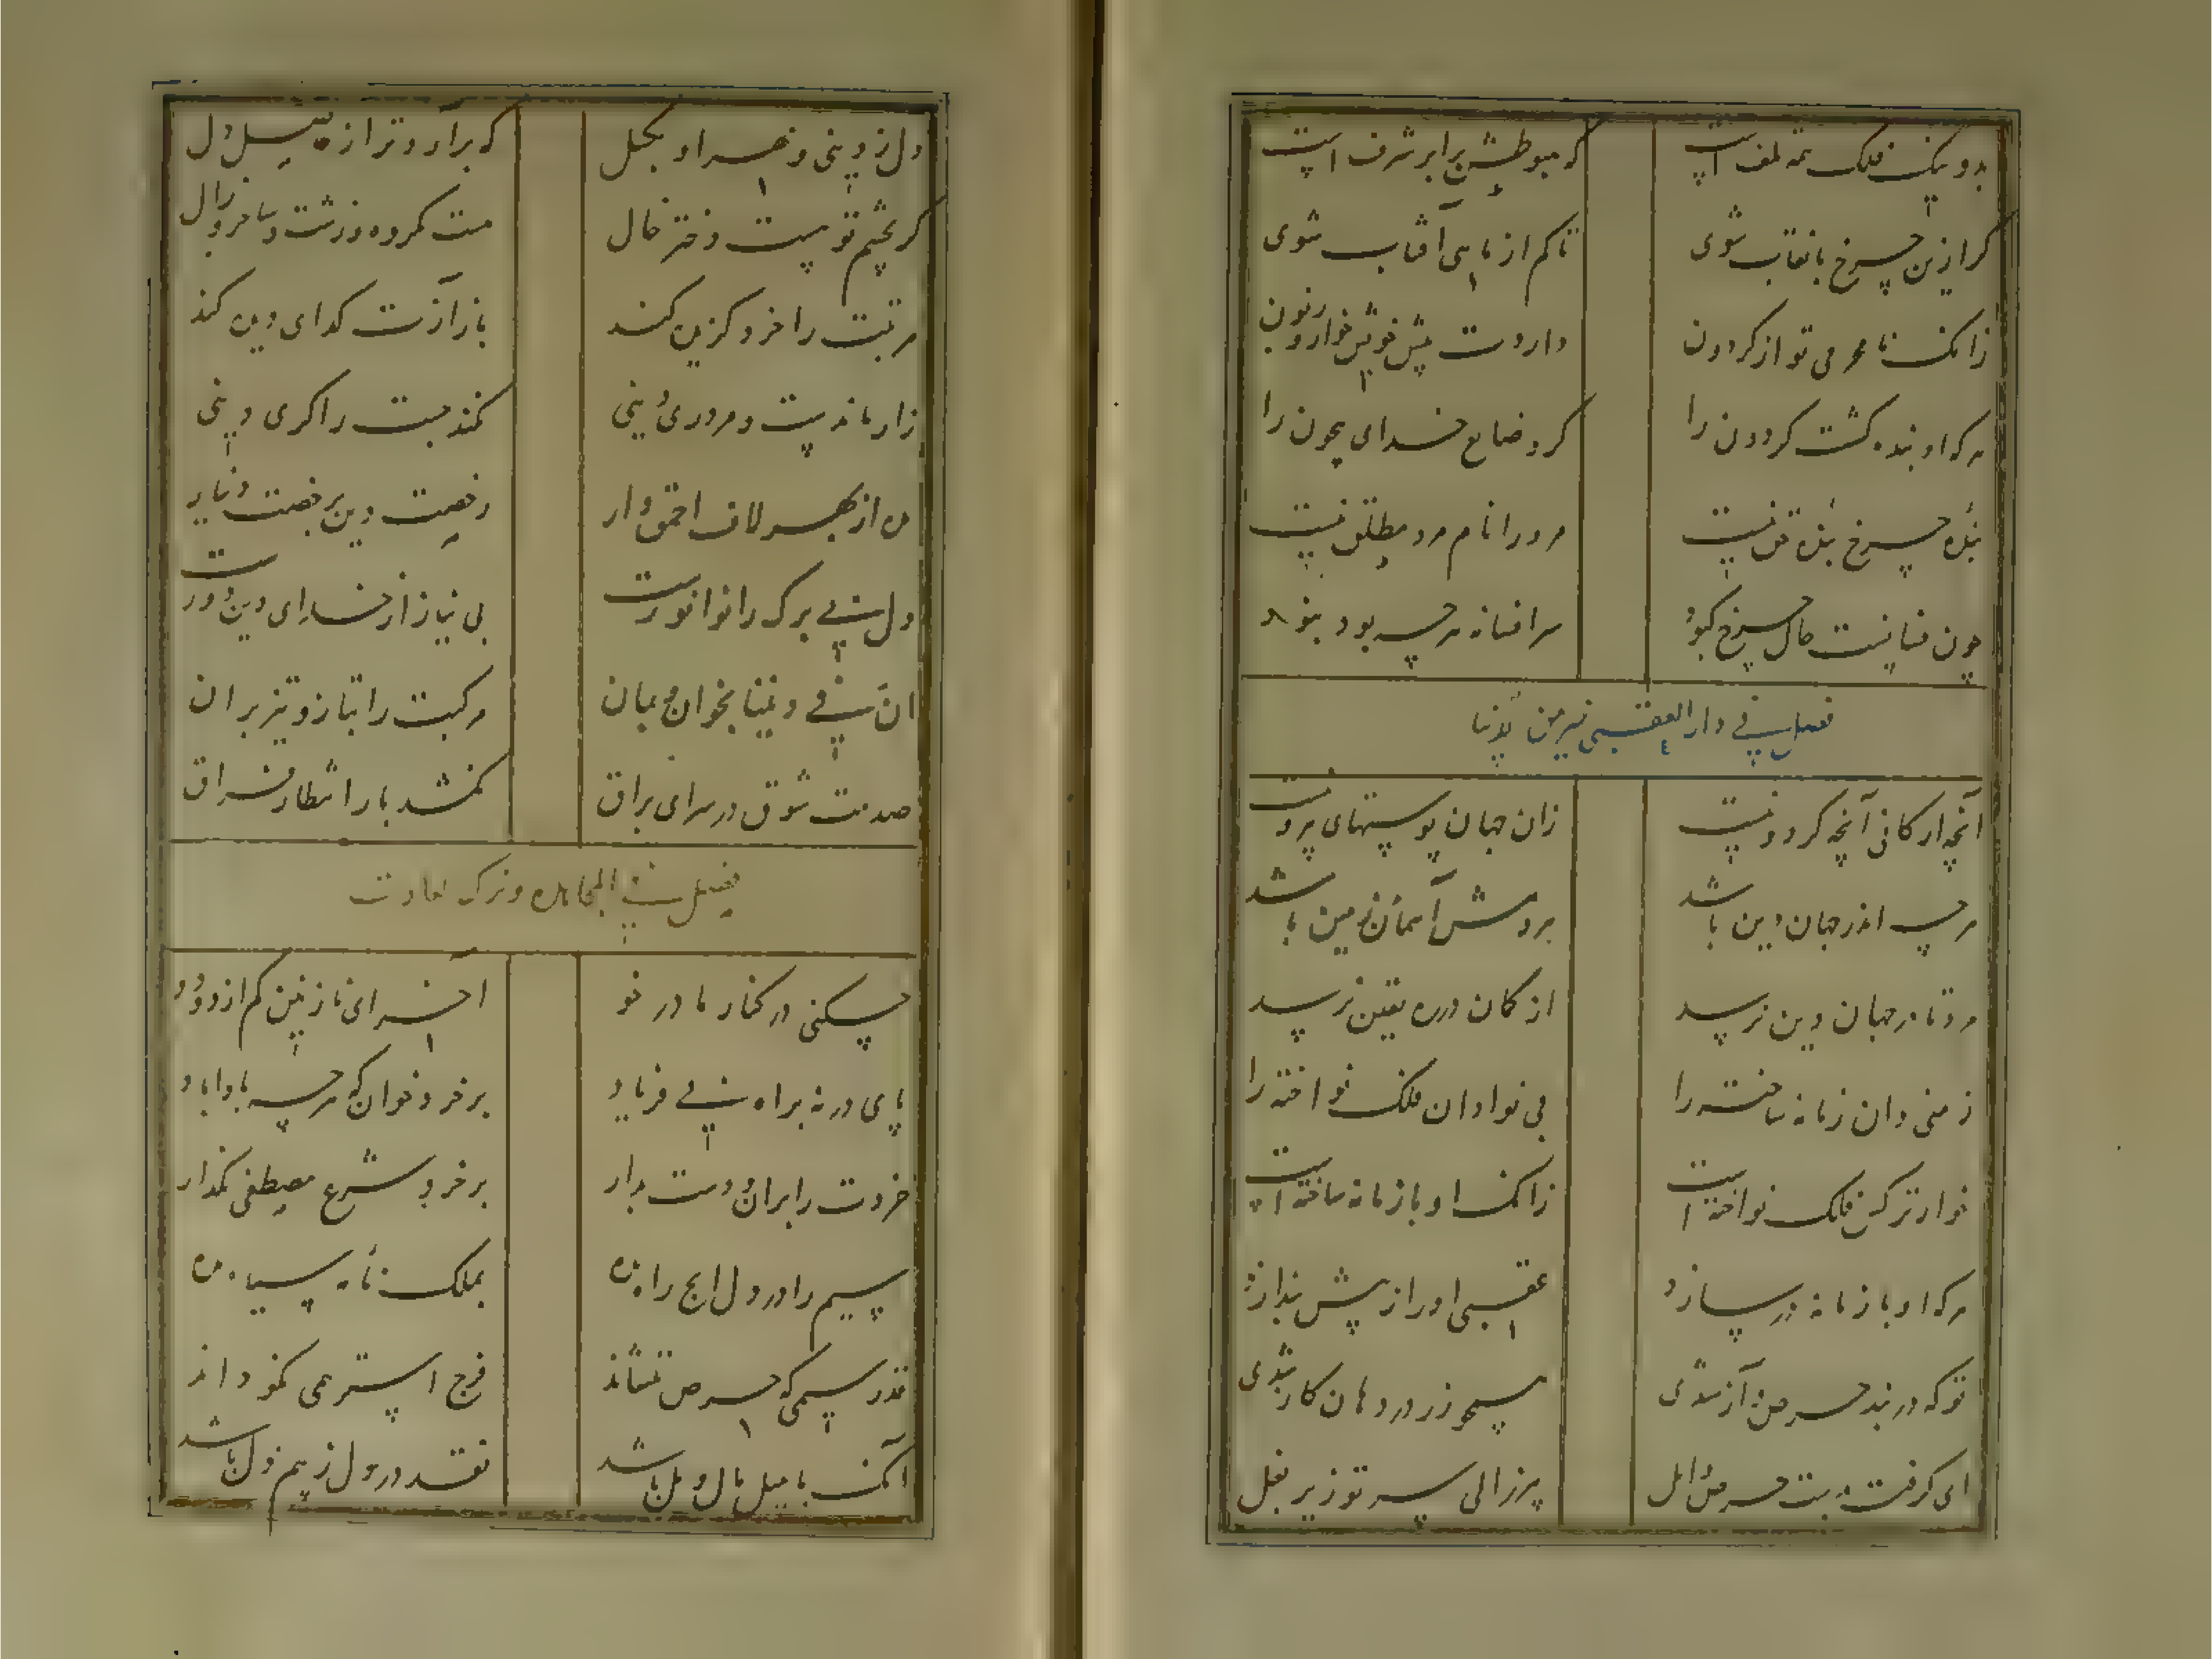 بد و نیک فلک همه تلف است که هبوطش برابر شرف است
گر ازین چرخ با نقاب شوی تا کم از ماهی آفتاب شوی
زانک نامحرمی تو از گردون داردت پیش خویش خوار و زبون
هرکه او بنده گشت گردون را کرد ضایع خدای بیچون را
بنده چرخ بنده حق نیست مرد را نام مرد مطلق نیست
چون فنانیست حال چرخ کبود سر افسانه هرچه بود نبود
فصل فی دار العقبی خیر من الدنیا
آنچه ارکانی آنچه گردونیست زان جهان پوستهای بیرونیست
هرچه اندر جهان دین باشد بر دمش آسمان زمین باشد
مرد تا در جهان دین نرسد از گمان در ره یقین نرسد
زمنی دان زمانه ساخته را بی نوا دان فلک نواخته را
خوارتر کس فلک نواخته است زانک او با زمانه ساخته است
هرکه او با زمانه در سازد عقبی او را ز پیش بندازد
تو که در بند حرص و آز شدی همچو زر در دهان گاز شدی
ای گرفت بت حرص و امل پیر زالی سر تو زیر بغل
دل ز دینی و خیر او بگسل که برآرد ترا ز سل دل
گر بچشم تو هست دختر خال هست مکروه و زشت و ساحر و زال
مرتبت را خرد گزین کند باز آزت گدای دین کند
زار ماند پست و مرد ری دینی نکند همت راکری دینی
من از بهر لاف احمق وار رخصت دین برخصت دینار
دل بی برگ را نوا نورست بی نیاز از خدای دین دورست
ان فی دیننا بخوان و بمان مرکبت را بتاز و تیز بران
صدمت شوق در سرای براق نکشد بار انتظار فراق
فصل فی المجاهده و ترک العادت
چکنی در کنار مادر خو آخر ای نازنین کم از دو دو
پای در نه براه بی فریاد بر خرد خوان که هرچه باداباد
خردت را برای دست بدار بر خرد شرع مصطفی بگمار
سیم را در دل ایج راه مده بملک نامه سیاه مده
قدر سیمی که حرص بنشاند فرج استر همی نکو داند
آنک با میل مال و مل باشد نقد در دل ز بیم ذل باشد